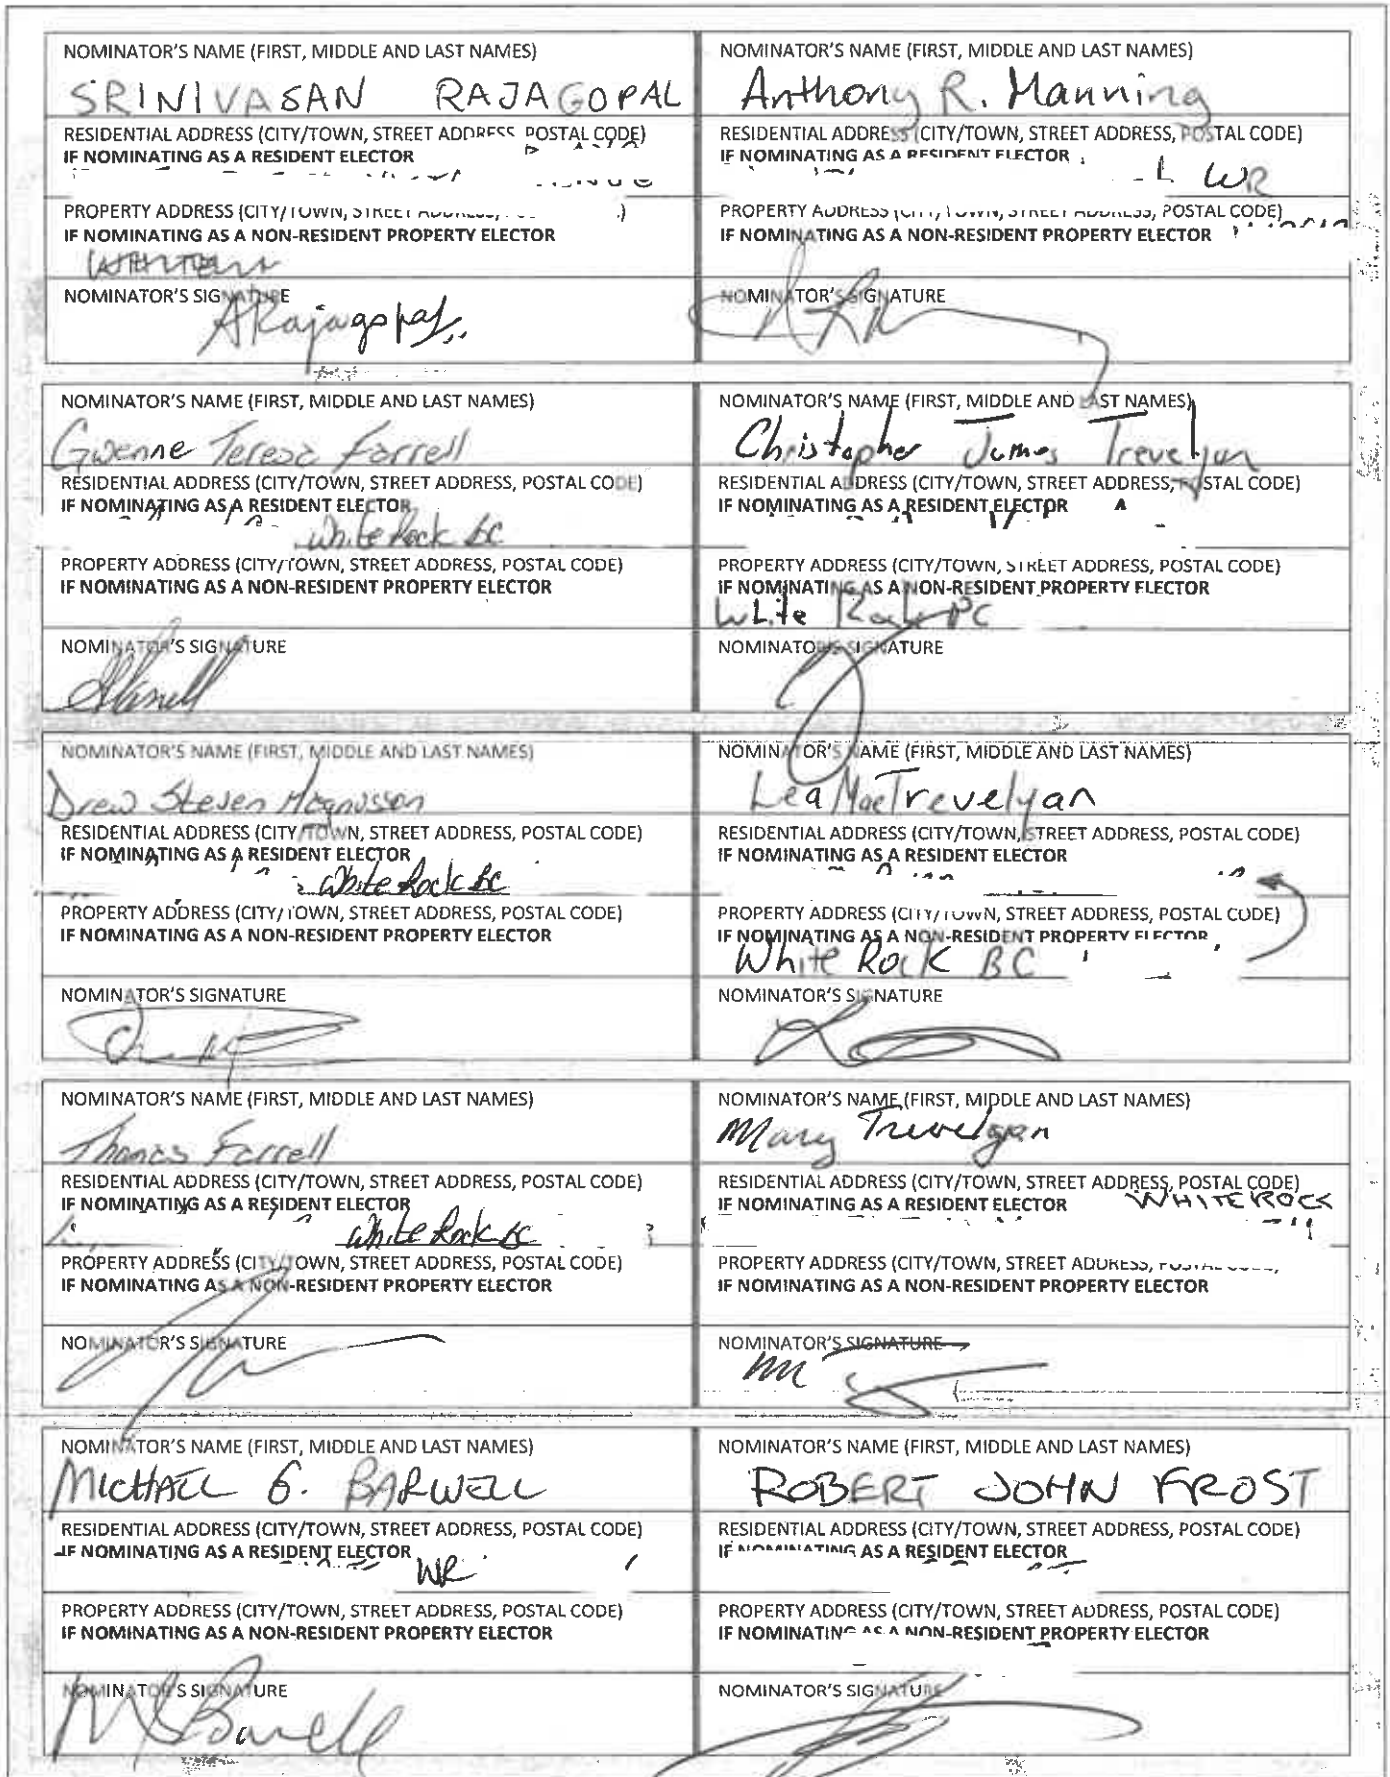 NOMINATOR'S NAME (FIRST, MIDDLE AND LAST NAMES)
SRINIVASAN RAJAGOPAL
RESIDENTIAL ADDRESS (CITY/TOWN, STREET ADDRESS POSTAL CODE)
IF NOMINATING AS A RESIDENT ELECTOR
PROPERTY ADDRESS (CITY/TOWN, STREET
IF NOMINATING AS A NON-RESIDENT PROPERTY ELECTOR
NOMINATOR'S SIGNATURE
ARajagopal
NOMINATOR'S NAME (FIRST, MIDDLE AND LAST NAMES)
Anthony R. Manning
RESIDENTIAL ADDRESS (CITY/TOWN, STREET ADDRESS, POSTAL CODE)
IF NOMINATING AS A RESIDENT ELECTOR
WR
PROPERTY ADDRESS (CITY/TOWN, STREET ADDRESS, POSTAL CODE)
IF NOMINATING AS A NON-RESIDENT PROPERTY ELECTOR
NOMINATOR'S SIGNATURE
NOMINATOR'S NAME (FIRST, MIDDLE AND LAST NAMES)
Gwenne Teresa Farrell
RESIDENTIAL ADDRESS (CITY/TOWN, STREET ADDRESS, POSTAL CODE)
IF NOMINATING AS A RESIDENT ELECTOR
White Rock BC
PROPERTY ADDRESS (CITY/TOWN, STREET ADDRESS, POSTAL CODE)
IF NOMINATING AS A NON-RESIDENT PROPERTY ELECTOR
NOMINATOR'S SIGNATURE
NOMINATOR'S NAME (FIRST, MIDDLE AND LAST NAMES)
Christopher James Trevelyan
RESIDENTIAL ADDRESS (CITY/TOWN, STREET ADDRESS, POSTAL CODE)
IF NOMINATING AS A RESIDENT ELECTOR
PROPERTY ADDRESS (CITY/TOWN, STREET ADDRESS, POSTAL CODE)
IF NOMINATING AS A NON-RESIDENT PROPERTY ELECTOR
White Rock BC
NOMINATOR'S SIGNATURE
NOMINATOR'S NAME (FIRST, MIDDLE AND LAST NAMES)
Drew Steven Magnusson
RESIDENTIAL ADDRESS (CITY/TOWN, STREET ADDRESS, POSTAL CODE)
IF NOMINATING AS A RESIDENT ELECTOR
White Rock BC
PROPERTY ADDRESS (CITY/TOWN, STREET ADDRESS, POSTAL CODE)
IF NOMINATING AS A NON-RESIDENT PROPERTY ELECTOR
NOMINATOR'S SIGNATURE
NOMINATOR'S NAME (FIRST, MIDDLE AND LAST NAMES)
Lea Mae Trevelyan
RESIDENTIAL ADDRESS (CITY/TOWN, STREET ADDRESS, POSTAL CODE)
IF NOMINATING AS A RESIDENT ELECTOR
PROPERTY ADDRESS (CITY/TOWN, STREET ADDRESS, POSTAL CODE)
IF NOMINATING AS A NON-RESIDENT PROPERTY ELECTOR
White Rock BC
NOMINATOR'S SIGNATURE
NOMINATOR'S NAME (FIRST, MIDDLE AND LAST NAMES)
Thomas Farrell
RESIDENTIAL ADDRESS (CITY/TOWN, STREET ADDRESS, POSTAL CODE)
IF NOMINATING AS A RESIDENT ELECTOR
White Rock BC
PROPERTY ADDRESS (CITY/TOWN, STREET ADDRESS, POSTAL CODE)
IF NOMINATING AS A NON-RESIDENT PROPERTY ELECTOR
NOMINATOR'S SIGNATURE
NOMINATOR'S NAME (FIRST, MIDDLE AND LAST NAMES)
Mary Trevelyan
RESIDENTIAL ADDRESS (CITY/TOWN, STREET ADDRESS, POSTAL CODE)
IF NOMINATING AS A RESIDENT ELECTOR WHITE ROCK
PROPERTY ADDRESS (CITY/TOWN, STREET ADDRESS,
IF NOMINATING AS A NON-RESIDENT PROPERTY ELECTOR
NOMINATOR'S SIGNATURE
NOMINATOR'S NAME (FIRST, MIDDLE AND LAST NAMES)
MICHAEL G. BARWELL
RESIDENTIAL ADDRESS (CITY/TOWN, STREET ADDRESS, POSTAL CODE)
IF NOMINATING AS A RESIDENT ELECTOR
WR
PROPERTY ADDRESS (CITY/TOWN, STREET ADDRESS, POSTAL CODE)
IF NOMINATING AS A NON-RESIDENT PROPERTY ELECTOR
NOMINATOR'S SIGNATURE
NOMINATOR'S NAME (FIRST, MIDDLE AND LAST NAMES)
ROBERT JOHN FROST
RESIDENTIAL ADDRESS (CITY/TOWN, STREET ADDRESS, POSTAL CODE)
IF NOMINATING AS A RESIDENT ELECTOR
PROPERTY ADDRESS (CITY/TOWN, STREET ADDRESS, POSTAL CODE)
IF NOMINATING AS A NON-RESIDENT PROPERTY ELECTOR
NOMINATOR'S SIGNATURE